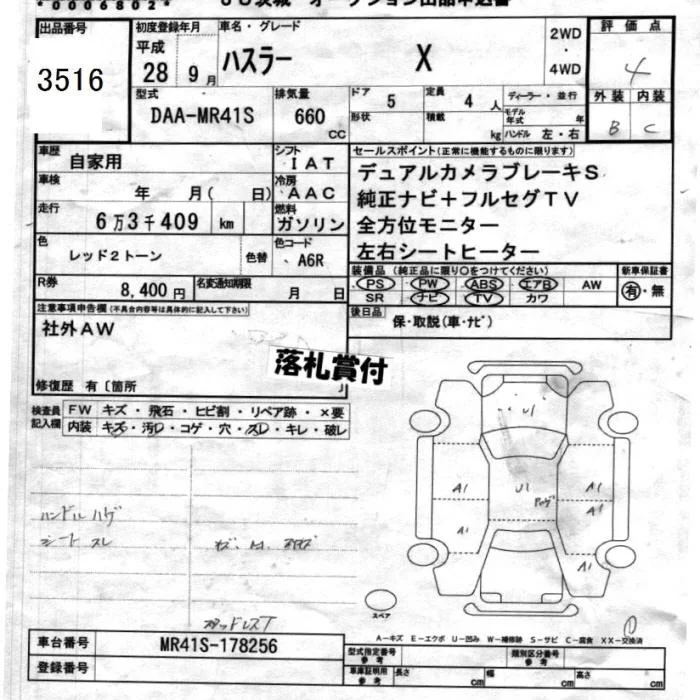 *0006802*
JU茨城 オークション出品申込書
出品番号
3516
初度登録年月
平成
28 9月
車名・グレード
ハスラー X
2WD
・
4WD
評価点
4
外装 内装
B C
型式
DAA-MR41S
排気量
660
CC
ドア 5
形状
定員 4 人
積載 kg
ディーラー・並行
モデル年式 年
ハンドル 左・右
車歴
自家用
シフト
IAT
車検
年 月( 日)
冷房
AAC
走行
6万3千409 km
燃料
ガソリン
色
レッド2トーン
色替
色コード
A6R
R券
8,400円
名変通知期限
月 日
セールスポイント(正常に機能するものに限ります)
デュアルカメラブレーキS
純正ナビ+フルセグTV
全方位モニター
左右シートヒーター
装備品(純正品に限り○をつけてください)
PS PW ABS エアB AW
SR ナビ TV カワ
新車保証書
有・無
後日品
保・取説(車・ナビ)
注意事項申告欄(不具合内容等は具体的に記入して下さい)
社外AW
落札賞付
修復歴 有〔箇所 〕
検査員記入欄
FW キズ・飛石・ヒビ割・リペア跡・×要
内装 キズ・汚レ・コゲ・穴・スレ・キレ・破レ
ハンドル ハゲ
シート スレ
スタッドレスT
U1
U1
A1
A1
A1
A1
A1
スペア
A-キズ E-エクボ U-凹み W-補修跡 S-サビ C-腐食 XX-交換済
車台番号
MR41S-178256
登録番号
型式指定番号
参考
類別区分番号
参考
車庫証明用
参考
長さ cm
幅 cm
高さ cm